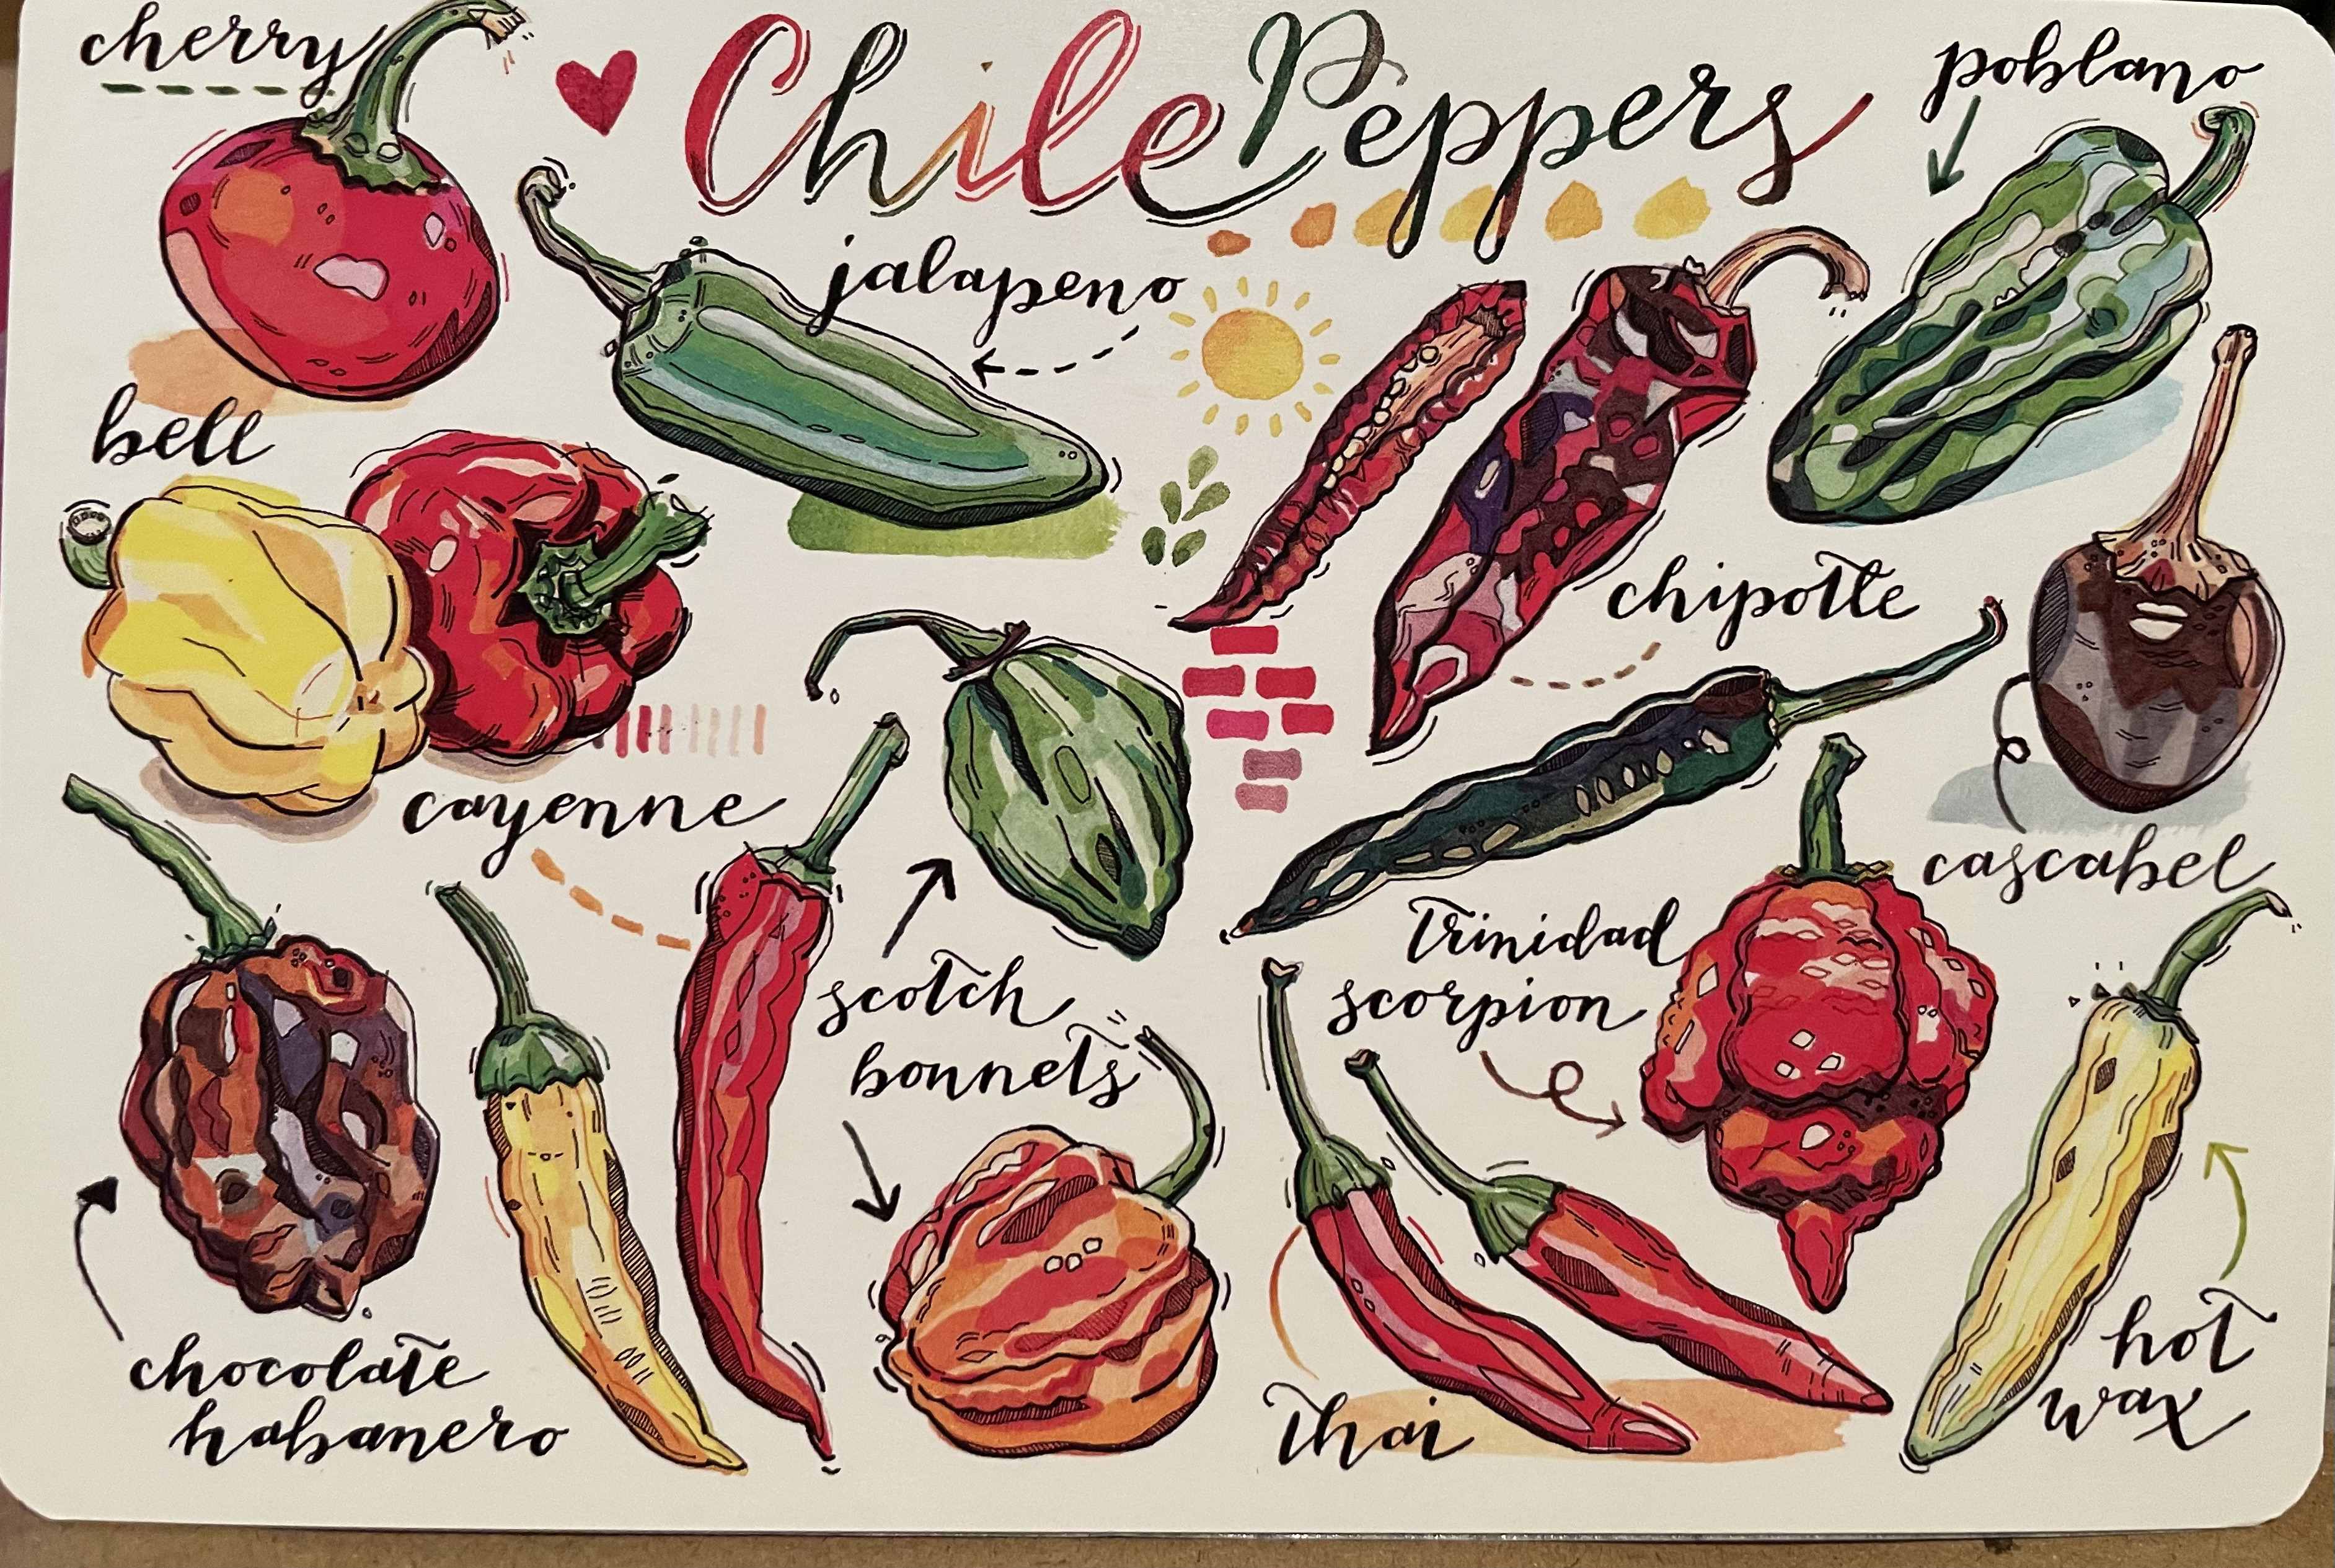 cherry
Chile Peppers
poblano
jalapeno
bell
chipotle
cayenne
cascabel
scotch
bonnets
trinidad
scorpion
chocolate
habanero
thai
hot
wax